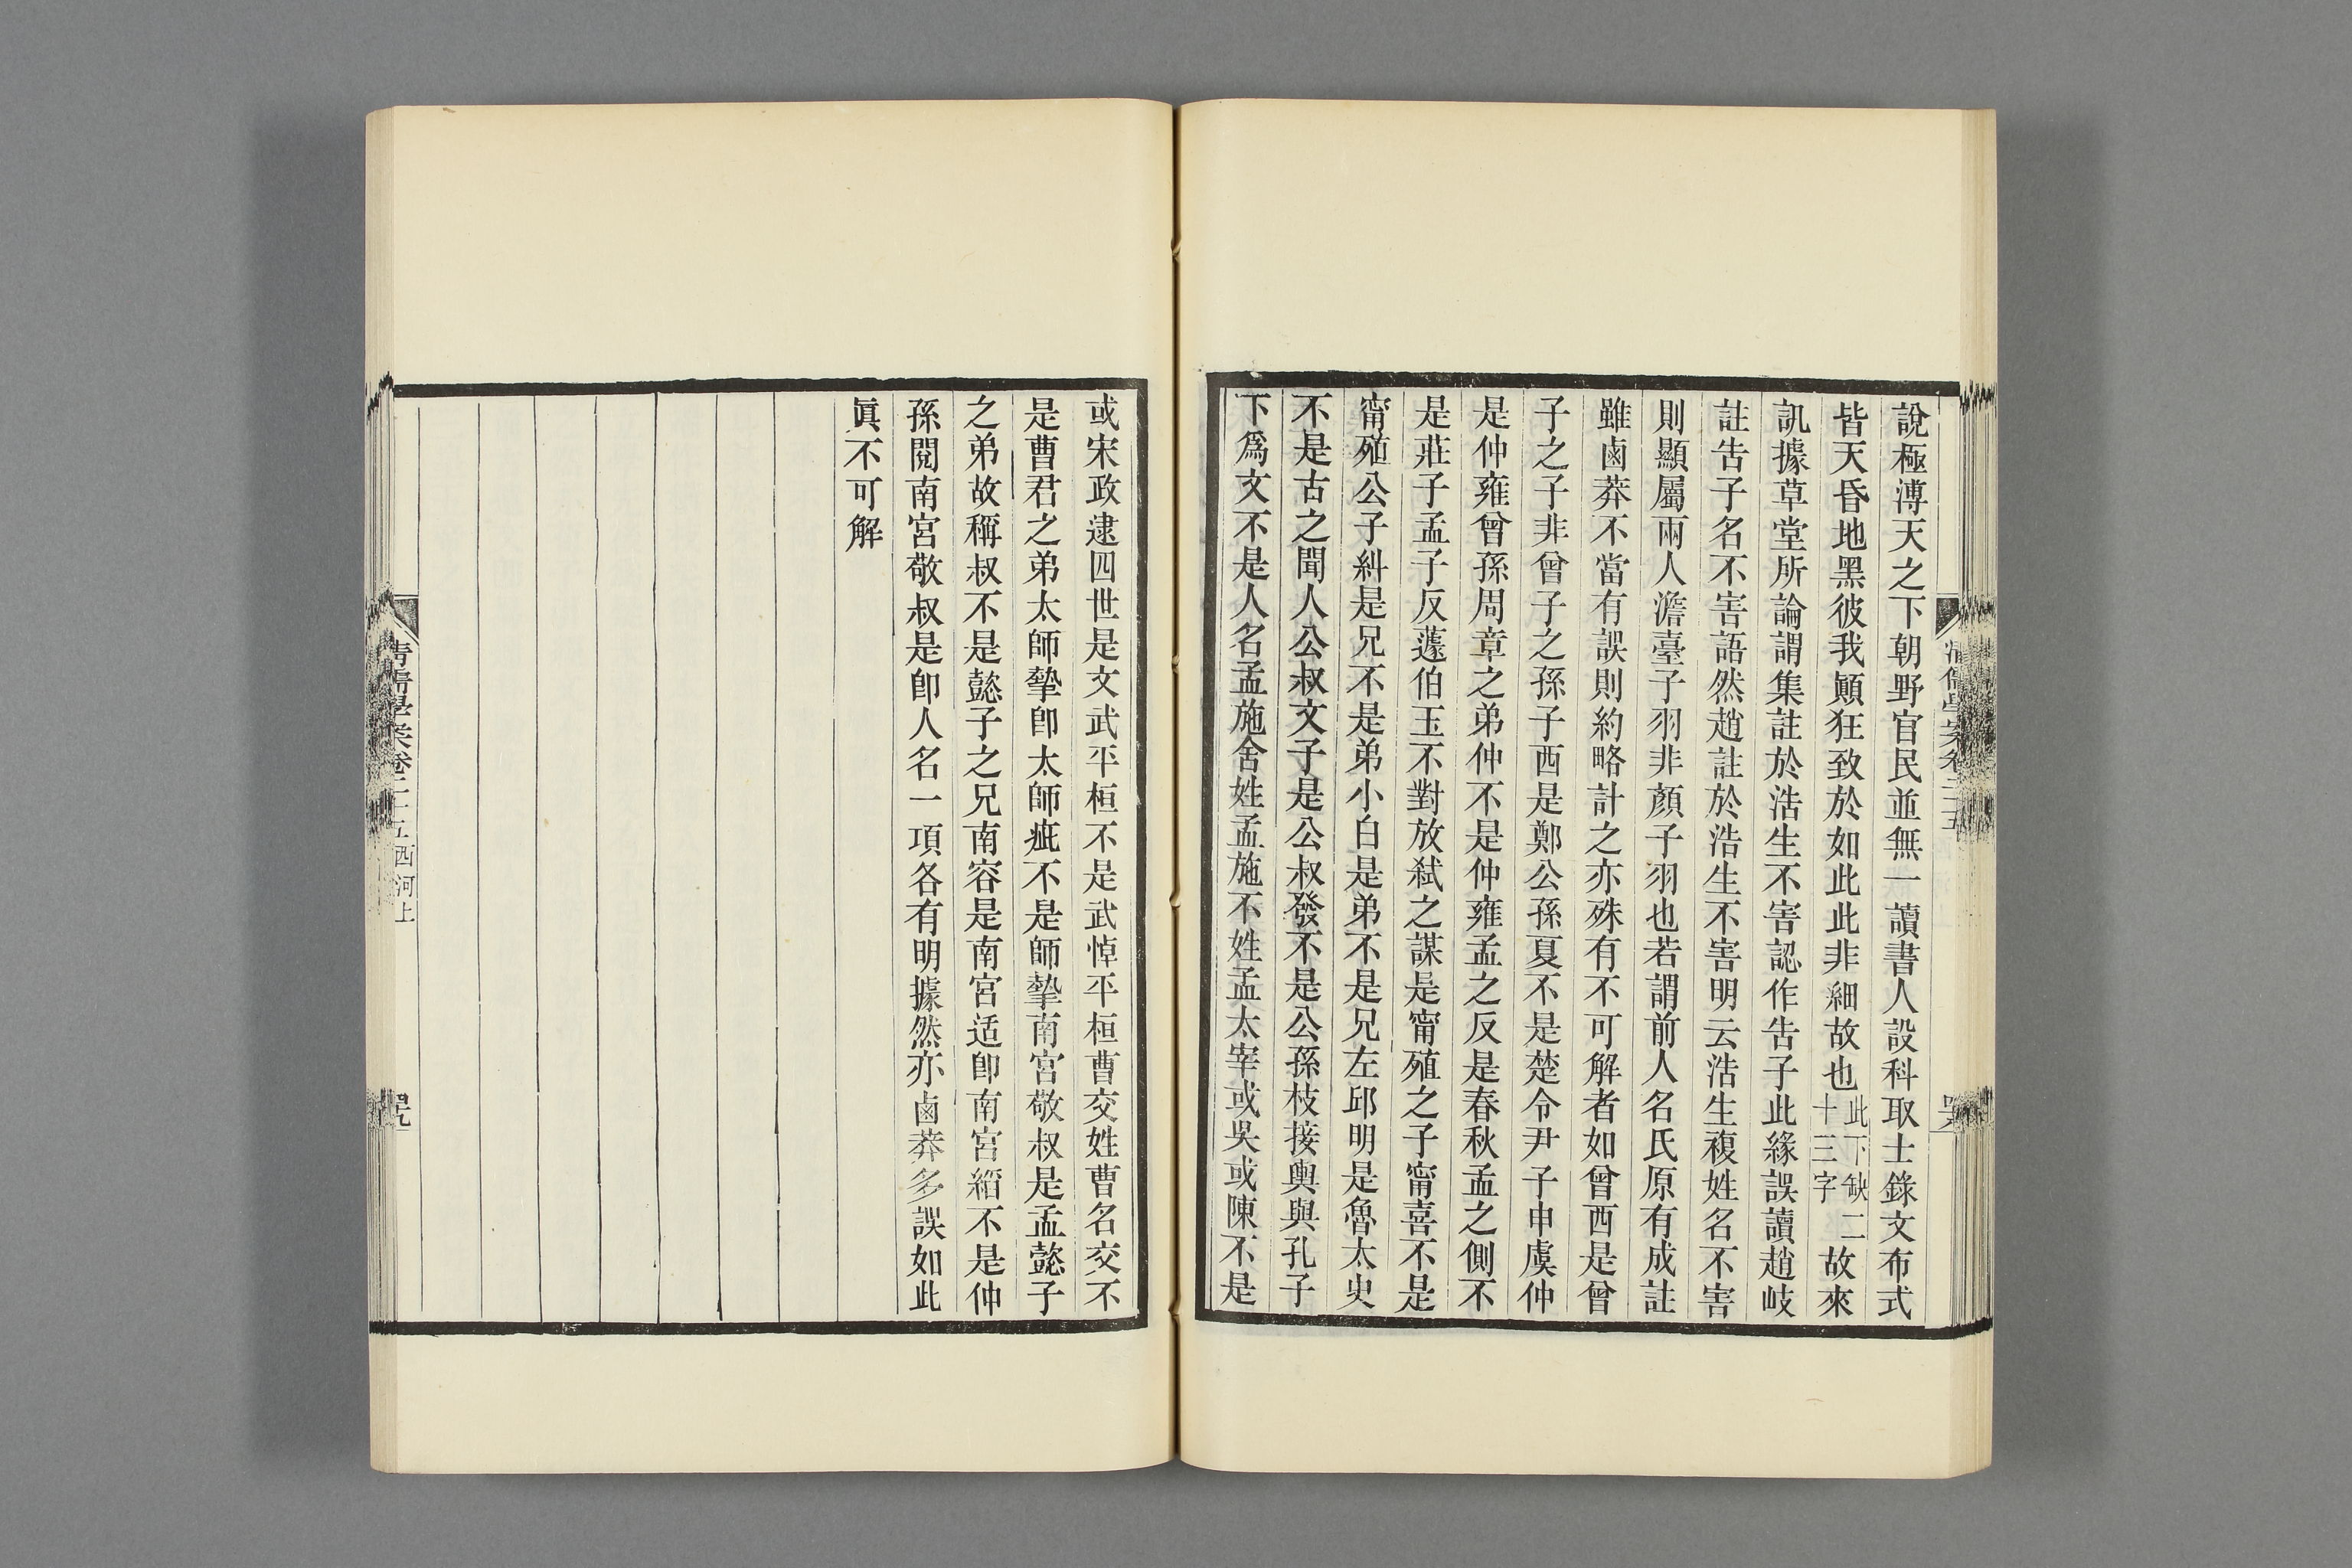 說極溥天之下朝野官民並無一讀書人設科取士錄文布式
皆天昏地黑彼我顚狂致於如此此非細故也此下缺二十三字故來
訊據草堂所論謂集註於浩生不害認作告子此緣誤讀趙岐
註告子名不害語然趙註於浩生不害明云浩生複姓名不害
則顯屬兩人澹臺子羽非顏子羽也若謂前人名氏原有成註
雖鹵莽不當有誤則約略計之亦殊有不可解者如曾西是曾
子之子非曾子之孫子西是鄭公孫夏不是楚令尹子申虞仲
是仲雍曾孫周章之弟仲不是仲雍孟之反是春秋孟之側不
是莊子孟子反蘧伯玉不對放弒之謀是甯殖之子甯喜不是
甯殖公子糾是兄不是弟小白是弟不是兄左邱明是魯太史
不是古之聞人公叔文子是公叔發不是公孫枝接輿與孔子
下爲文不是人名孟施舍姓孟施不姓孟太宰或吳或陳不是
清儒學案卷二十五
或宋政逮四世是文武平桓不是武悼平桓曹交姓曹名交不
是曹君之弟太師摯卽太師疵不是師摯南宮敬叔是孟懿子
之弟故稱叔不是懿子之兄南容是南宮适卽南宮縚不是仲
孫閱南宮敬叔是卽人名一項各有明據然亦鹵莽多誤如此
眞不可解
清儒學案卷二十五西河上